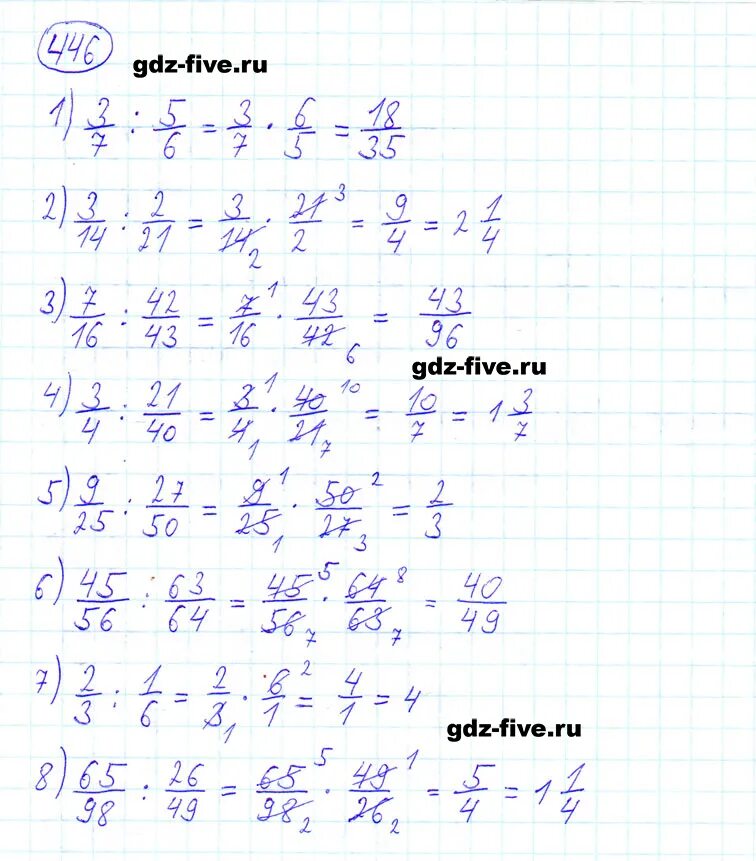 446
gdz-five.ru
1) 3/7 : 5/6 = 3/7 · 6/5 = 18/35
2) 3/14 : 2/21 = 3/14 2 · 21 3/2 = 9/4 = 2 1/4
3) 7/16 : 42/43 = 7 1/16 · 43/42 6 = 43/96
gdz-five.ru
4) 3/4 : 21/40 = 3 1/4 1 · 40 10/21 7 = 10/7 = 1 3/7
5) 9/25 : 27/50 = 9 1/25 1 · 50 2/27 3 = 2/3
6) 45/56 : 63/64 = 45 5/56 7 · 64 8/63 7 = 40/49
7) 2/3 : 1/6 = 2/3 1 · 6 2/1 = 4/1 = 4
gdz-five.ru
8) 65/98 : 26/49 = 65 5/98 2 · 49 1/26 2 = 5/4 = 1 1/4